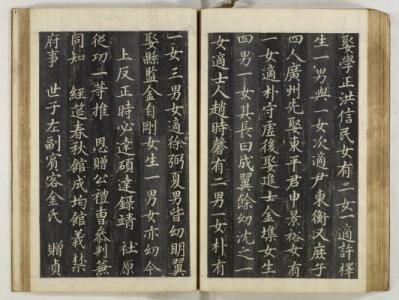 娶學正洪信民女有二女一適許擇
生一男與一女次適尹東衡又庶子
四人廣州先娶東平君申景裕女有
一女適朴守虛後娶進士金女生
四男一女其長曰成翼餘幼沈之一
女適士人趙時馨有二男一女朴有
一女三男女適徐弼夏男皆幼明翼
娶縣監金自剛女生一男女亦幼今
上反正時必達碩達錄靖 社原
從功一等推 恩贈公禮曹參判兼
同知 經筵春秋館成均館義禁
府事 世子左副賓客金氏 贈貞